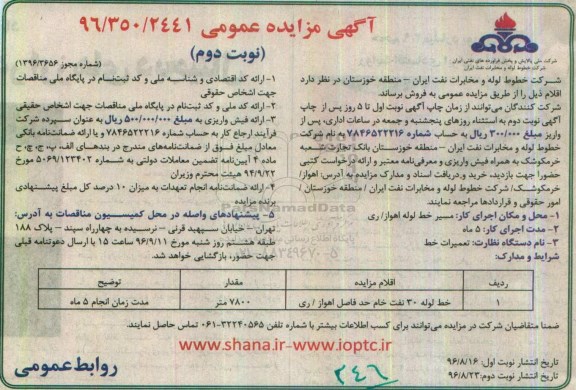 آگهی مزایده عمومی ۹۶/۳۵۰/۲۴۴۱
(نوبت دوم)
(شماره مجوز ۱۳۹۶/۳۶۵۶)
شرکت ملی پالایش و پخش فرآورده های نفتی ایران
شرکت خطوط لوله و مخابرات نفت ایران
شرکت خطوط لوله و مخابرات نفت ایران – منطقه خوزستان در نظر دارد
اقلام ذیل را از طریق مزایده عمومی به فروش برساند.
شرکت کنندگان می‌توانند از زمان چاپ آگهی نوبت اول تا ۵ روز پس از چاپ
آگهی نوبت دوم به استثناء روزهای پنجشنبه و جمعه در ساعات اداری، پس از
واریز مبلغ ۳۰۰/۰۰۰ ریال به حساب شماره ۷۸۴۶۵۲۲۲۱۶ به نام شرکت
خطوط لوله و مخابرات نفت ایران – منطقه خوزستان بانک تجارت شعبه
خرمکوشک به همراه فیش واریزی و معرفی‌نامه معتبر و ارائه درخواست کتبی
حضوراً جهت بازدید، خرید و دریافت اسناد و مدارک مزایده به آدرس: اهواز/
خرمکوشک/ شرکت خطوط لوله و مخابرات نفت ایران / منطقه خوزستان /
امور حقوقی و قراردادها مراجعه نمایند.
۱- محل و مکان اجرای کار: مسیر خط لوله اهواز/ ری
۲- مدت اجرای کار: ۵ ماه
۳- نام دستگاه نظارت: تعمیرات خط
شرایط و مدارک:
۱- ارائه کد اقتصادی و شناسه ملی و کد ثبت‌نام در پایگاه ملی مناقصات
جهت اشخاص حقوقی
۲- ارائه کد ملی و کد ثبت‌نام در پایگاه ملی مناقصات جهت اشخاص حقیقی
۳- ارائه فیش واریزی به مبلغ ۵۰۰/۰۰۰/۰۰۰ ریال به عنوان سپرده شرکت
فرآیند ارجاع کار به حساب شماره ۷۸۴۶۵۲۲۲۱۶ و یا ارائه ضمانت‌نامه بانکی
معادل مبلغ فوق از ضمانت‌نامه‌های مندرج در بندهای الف، پ، ج، چ، ح
ماده ۴ آیین‌نامه تضمین معاملات دولتی به شماره ۵۰۶۹/۱۲۳۴۰۲ مورخ
۹۴/۹/۲۲ هیئت محترم وزیران
۴- ارائه ضمانت‌نامه انجام تعهدات به میزان ۱۰ درصد کل مبلغ پیشنهادی
برنده مزایده
۵- پیشنهادهای واصله در محل کمیسیون مناقصات به آدرس:
تهران – خیابان سپهبد قرنی – نرسیده به چهارراه سپند – پلاک ۱۸۸
طبقه هشتم روز شنبه مورخ ۹۶/۹/۱۱ ساعت ۱۵ با ارسال دعوتنامه قبلی
جهت حضور، بازگشایی خواهد شد.
ردیف اقلام مزایده مقدار توضیح
۱ خط لوله ۳۰ نفت خام حد فاصل اهواز / ری ۷۸۰۰ متر مدت زمان انجام ۵ ماه
ضمنا متقاضیان شرکت در مزایده می‌توانند برای کسب اطلاعات بیشتر با شماره تلفن ۳۲۲۴۰۵۶۵-۰۶۱ تماس حاصل نمایند.
www.shana.ir-www.ioptc.ir
تاریخ انتشار نوبت اول: ۹۶/۸/۱۶
تاریخ انتشار نوبت دوم: ۹۶/۸/۲۳
۲۴۶
روابط عمومی